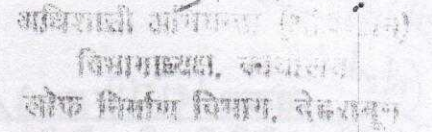 अधिशासी अभियन्ता
विभागाध्यक्ष, कार्यालय
लोक निर्माण विभाग, देहरादून